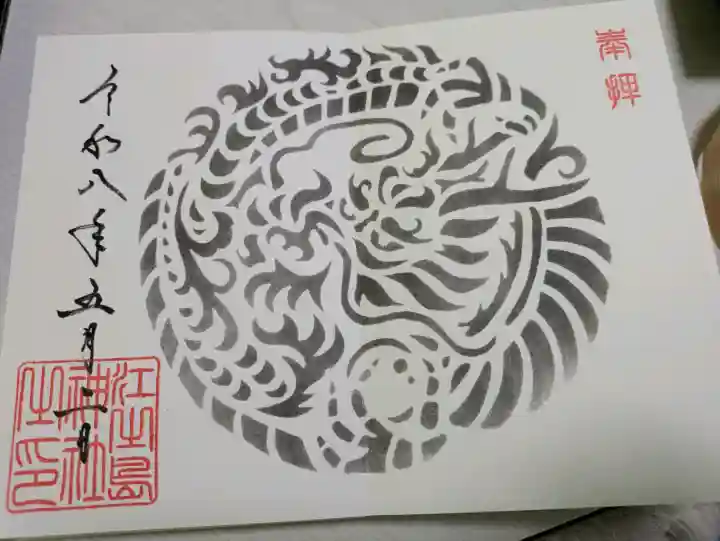 奉拝
令和八年五月二日
江之島
神社
之印